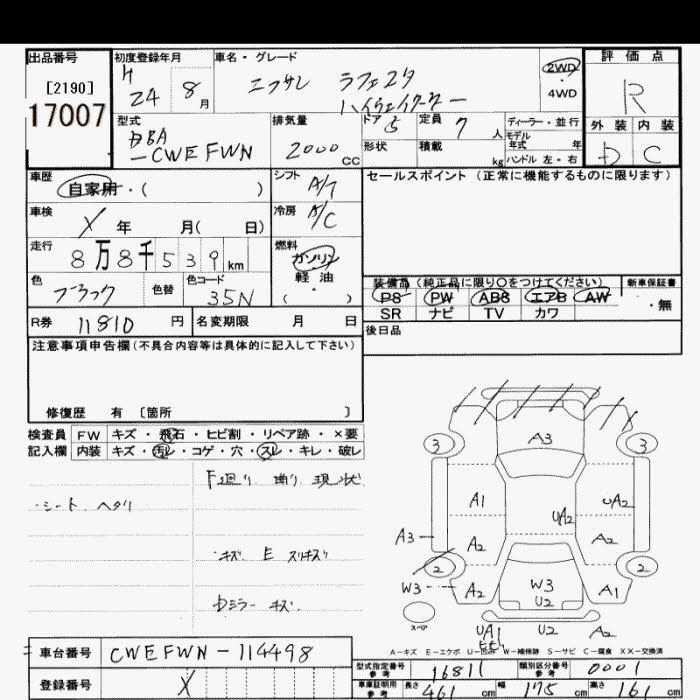 出品番号 初度登録年月 車名・グレード 評価点
[2190] H 24 8月 ニッサン ラフェスタ 2WD・4WD R
17007 ハイウェイスター
型式 排気量 ドア 5 定員 7人 ディーラー・並行 外装 内装
DBA 2000cc 形状 積載 kg モデル年式 年 D C
-CWEFWN ハンドル 左・右
車歴 自家用・( ) シフト A/T セールスポイント (正常に機能するものに限ります)
車検 X 年 月( 日) 冷房 A/C
走行 8万8千539km 燃料 ガソリン
軽油
( )
色 ブラック 色替 色コード 35N 装備品 (純正品に限り○をつけてください) 新車保証書
PS PW ABS エアB AW ・無
SR ナビ TV カワ
R券 11810円 名変期限 月 日 後日品
注意事項申告欄(不具合内容等は具体的に記入して下さい)
修復歴 有 〔箇所 〕
検査員 FW キズ・飛石・ヒビ割・リペア跡・×要
記入欄 内装 キズ・汚レ・コゲ・穴・スレ・キレ・破レ
F廻り 曲り 現状
・シート ヘタリ
・キズ E スリキズ
Dミラー キズ
A3
3 3
A1 UA2 UA2
A3 A2 A2
2 2
W3 A2 W3 U2 A1
スペア
UA1 U2 A2
A-キズ E-エクボ U-凹み W-補修跡 S-サビ C-腐食 XX-交換済
車台番号 CWEFWN-114498
型式指定番号 参考 16811 類別区分番号 参考 0001
登録番号 X
車庫証明用 参考 長さ 461cm 幅 175cm 高さ 161cm